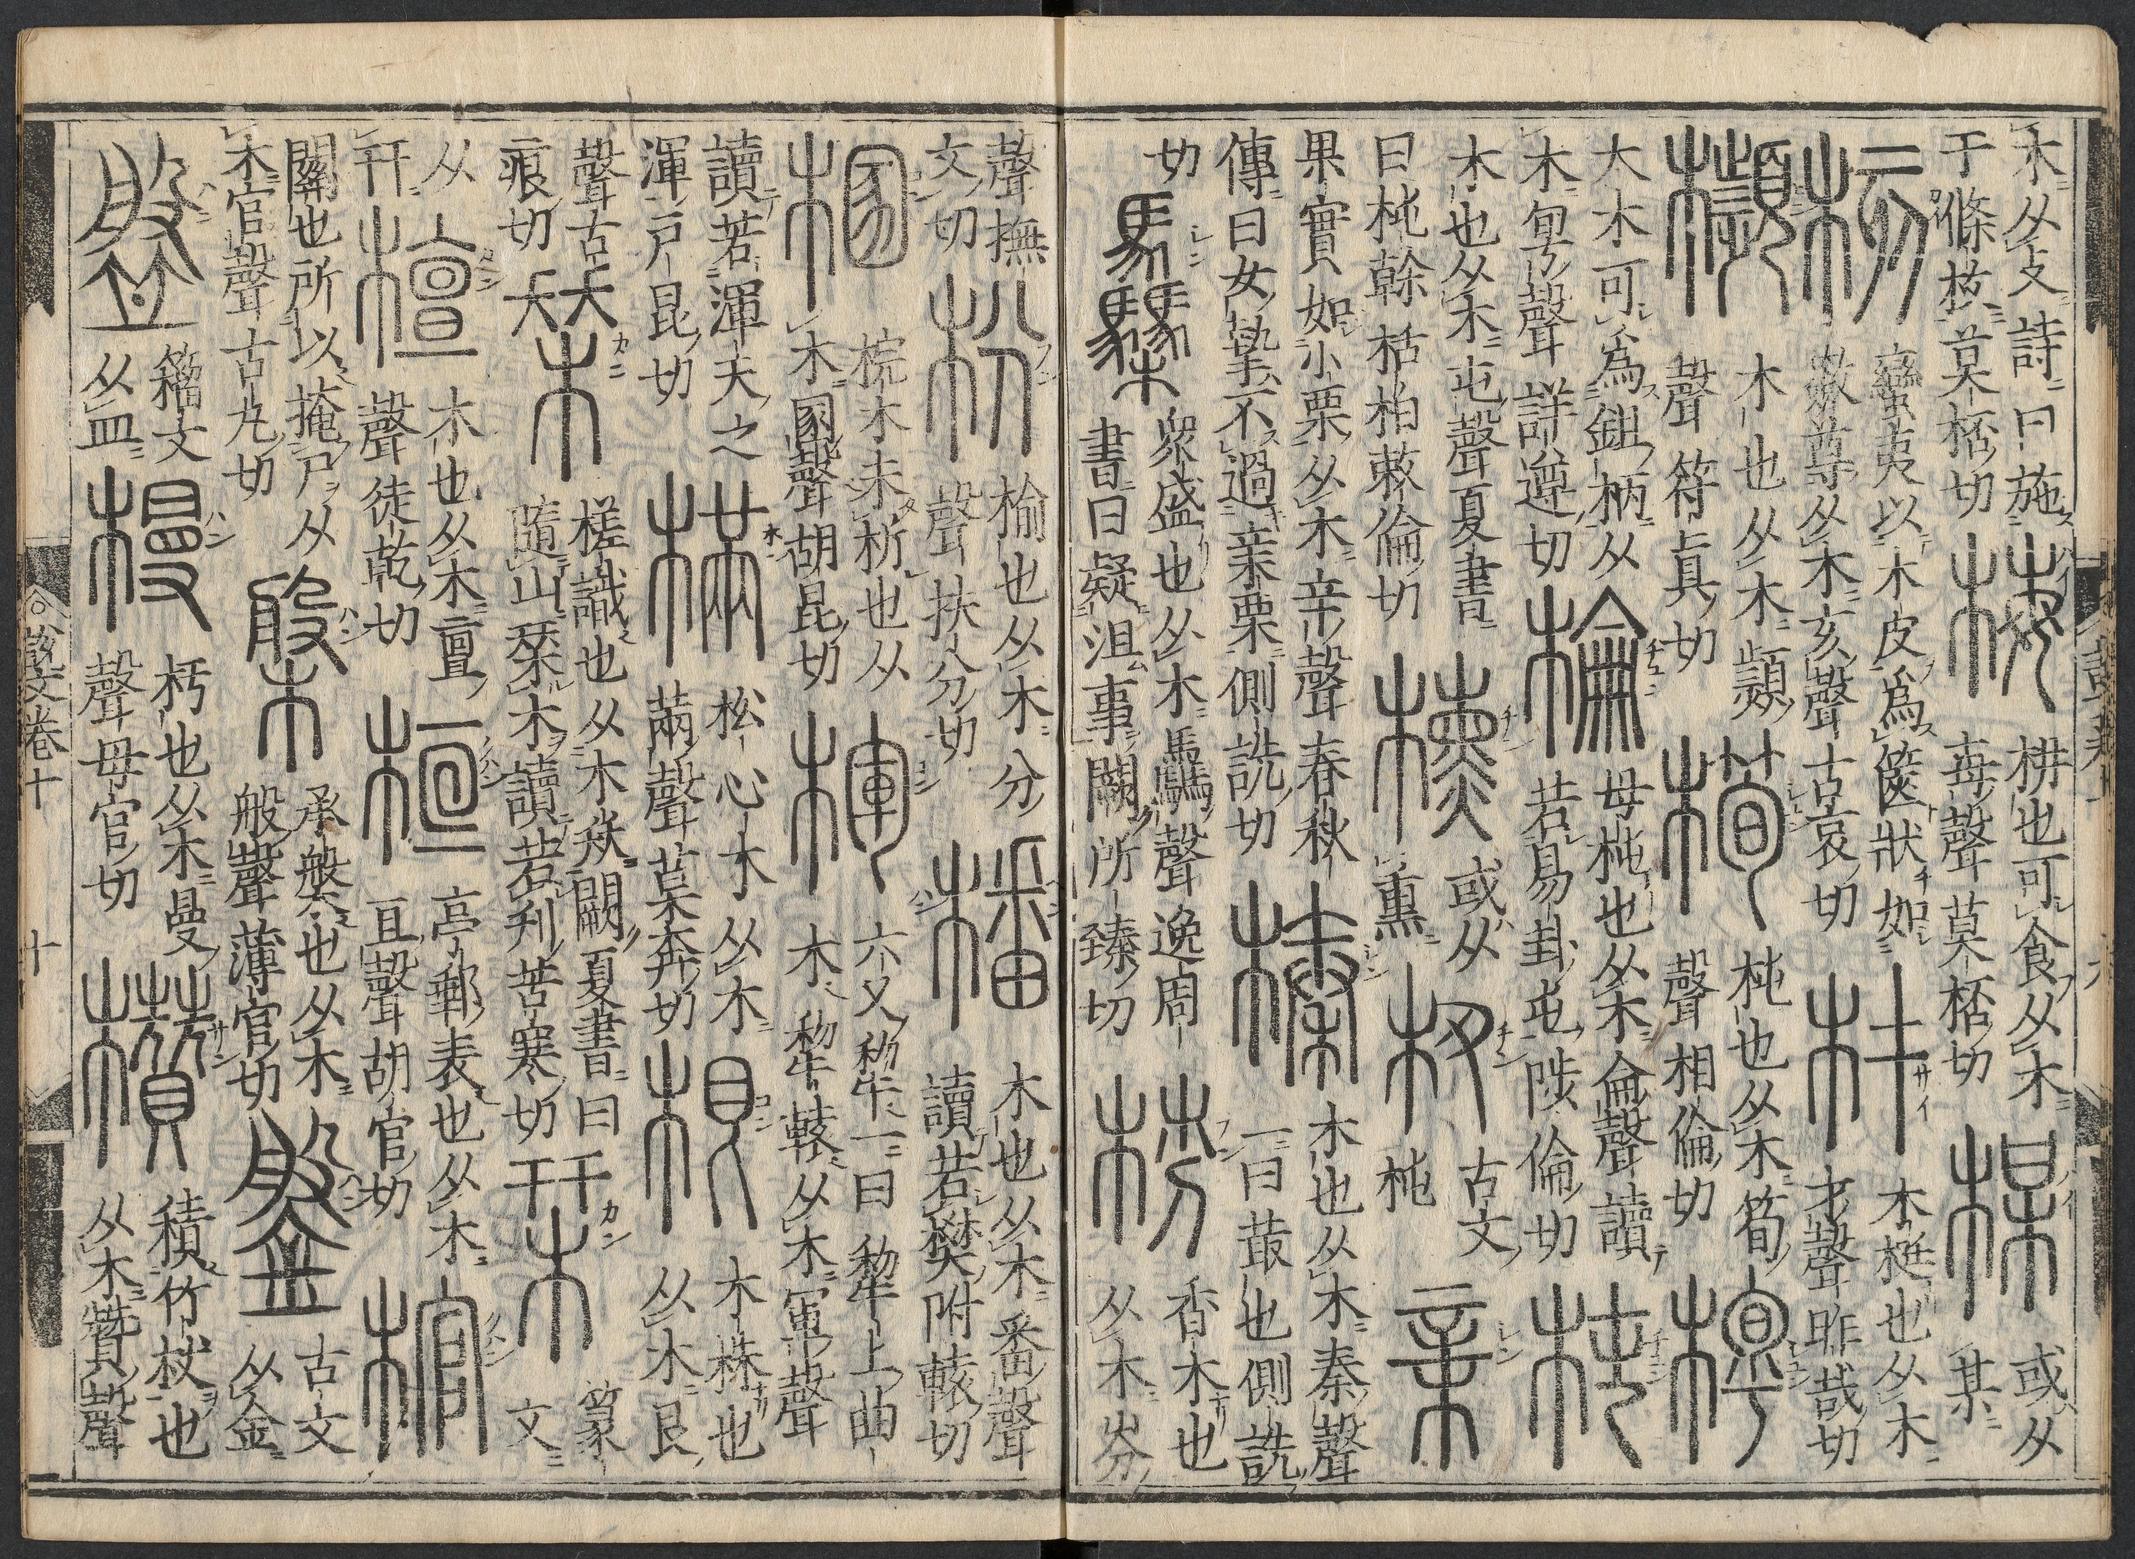 木从攴詩曰施
于條枚莫桮切
梅
枏也可食从木
每聲莫桮切
楳
或从
某
核
蠻夷以木皮爲篋狀如
尊从木亥聲古哀切
材
木梃也从木
才聲昨哉切
木也从木
聲符真切
杶也从木筍
聲相倫切
大木可爲鉏柄从
木粤聲詳遵切
棆
母杶也从木侖聲讀
若易卦屯陟倫切
杶
木也从木屯聲夏書
曰杶榦栝柏敕倫切
櫄
或从
薰
杻
古文
杶
亲
果實如小栗从木辛聲春秋
傳曰女摯不過亲栗側詵切
榛
木也从木秦聲
一曰叢也側詵
切
𣡕
衆盛也从木驫聲逸周
書曰疑沮事闕所臻切
梤
香木也
从木岑
聲撫
文切
枌
榆也从木分
聲扶分切
橎
木也从木番聲
讀若樊附轅切
棞
梡木未析也从
木圂聲胡昆切
楎
六叉犂一曰犂上曲
木犂轅从木軍聲
讀若渾天之
渾戶昆切
樠
松心木从木
㒼聲莫奔切
根
木株也
从木艮
聲古
痕切
槎識也从木㚁闕夏書曰
隨山栞木讀若刊苦寒切
栞
篆
文
从
幵
檀
木也从木亶
聲徒乾切
桓
亭郵表也从木
亘聲胡官切
棺
關也所以掩尸从
木官聲古丸切
槃
承槃也从木
般聲薄官切
鎜
古文
从金
盤
籒文
从皿
槾
杇也从木曼
聲母官切
欑
積竹杖也
从木贊聲
說文卷十
十